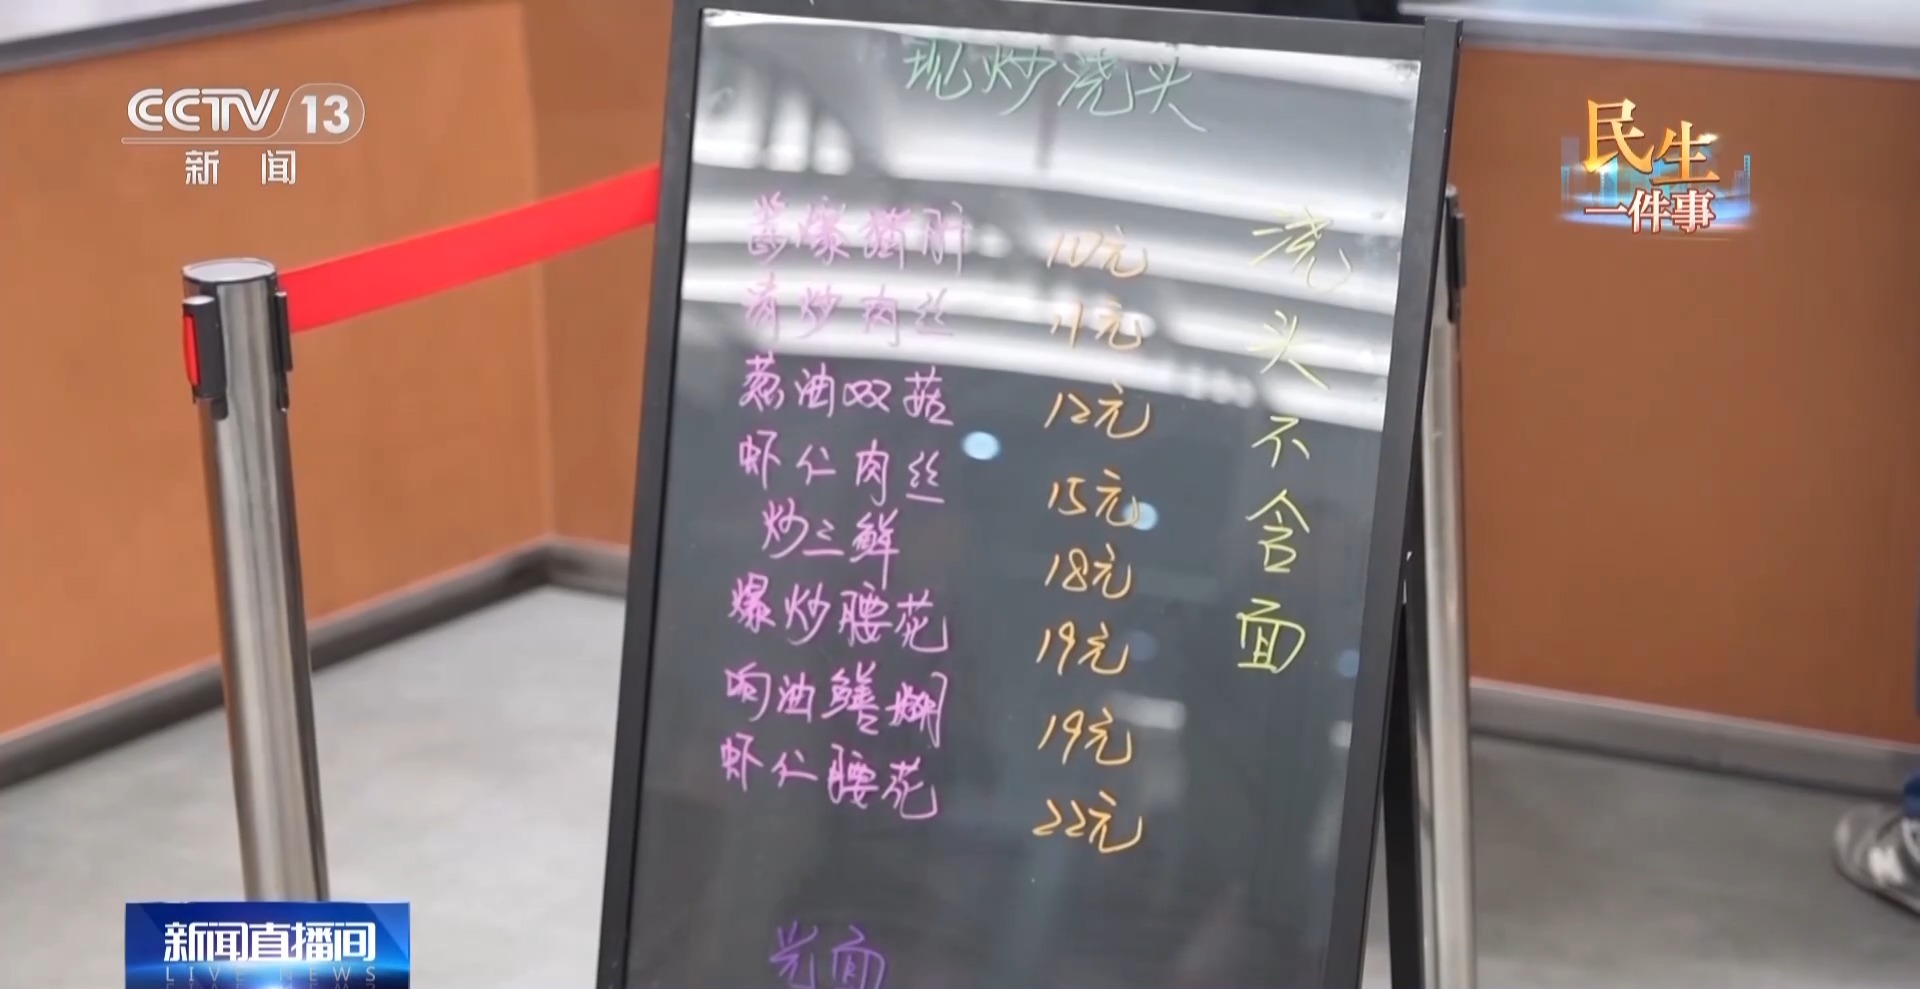 CCTV 13
新闻
民生
一件事
现炒浇头
酱爆猪肝 10元
清炒肉丝 11元
葱油双菇 12元
虾仁肉丝 15元
炒三鲜 18元
爆炒腰花 19元
响油鳝糊 19元
虾仁腰花 22元
浇头不含面
光面
新闻直播间
LIVE NEWS